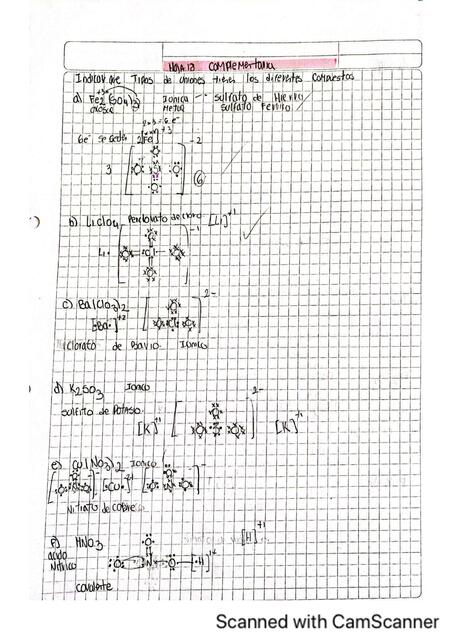 Hoja 12 Complementaria
Indicar que Tipos de uniones tienen los diferentes compuestos
a) Fe2(SO4)3 Ionica sulfato de Hierro
metal sulfato Ferrico
2x3=6 e-
6e- se ceden 2[Fe]+3
3 -2 6
b) LiClO4 Perclorato de [Li]+1
Li• Cl -1
c) Ba(ClO3)2 2-
[:Ba]+2
Clorato de Bario Ionico
d) K2SO3 Ionico
sulfito de Potasio
[K]+1 2- [K]+1
e) Cu(NO3)2 Ionico
[Cu•]
Nitrato de
F) HNO3 [H]+1
acido
Nitrico
covalente
Scanned with CamScanner